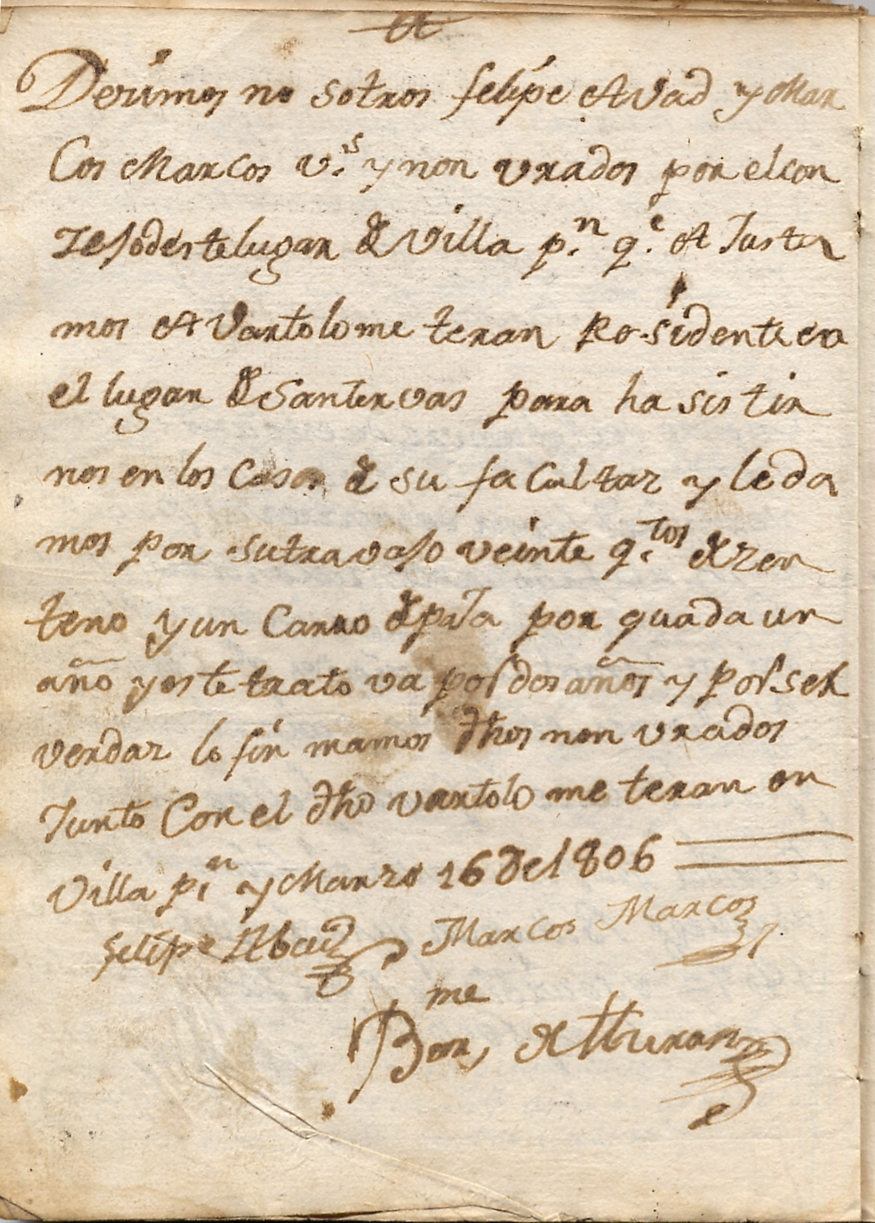 Dezimos no sotros felipe Avad y Mar
Cos Marcos v.s y non vrados por el con
zejo deste lugar de Villa p.n q.e A Justa
mos A Vartolome teran Residente en
el lugar de Santervas para ha sis tir
nos en los Casos de su faCultaz y le da
mos por su travajo veinte q.tos de zen
teno y un Carro de paja por quada un
año y este trato va por dos años y por ser
verdaz lo fir mamos dhos non vrados
Junto Con el dho vartolo me teran en
Villa p.n y Marzo 16 de 1806
felipe Abad Marcos Marcos
Barme